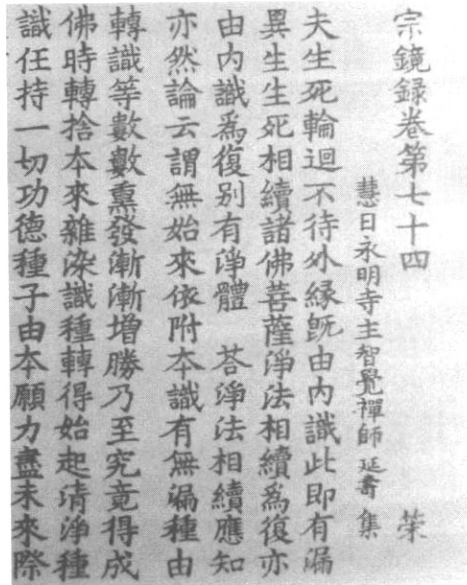 宗鏡録卷第七十四 荣
慧日永明寺主智覺禪師延壽 集
夫生死輪迴不待外縁旣由内識此即有漏
異生生死相續諸佛菩薩淨法相續爲復亦
由内識爲復别有淨體 荅淨法相續應知
亦然論云謂無始來依附夲識有無漏種由
轉識等數數熏發漸漸增勝乃至究竟得成
佛時轉捨夲來雜染識種轉得始起清淨種
識任持一切功德種子由夲願力盡未來際